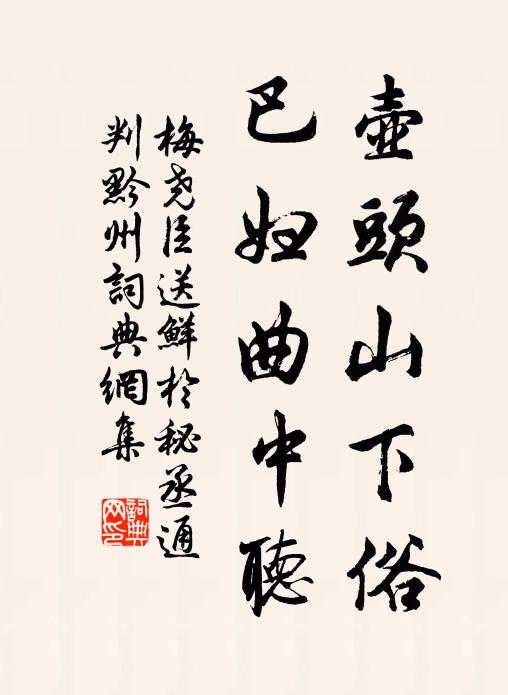 壺頭山下俗
巴婦曲中聽
梅堯臣送鮮於秘丞通
判黔州詞典網集
詞典
网印